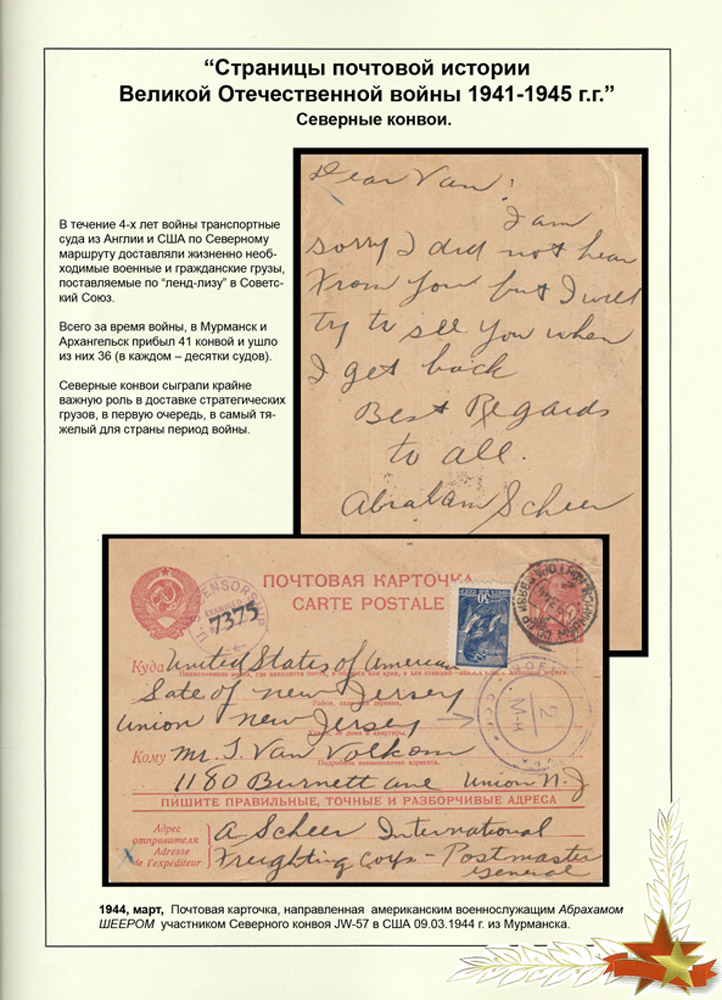 “Страницы почтовой истории
Великой Отечественной войны 1941-1945 г.г.”
Северные конвои.
В течение 4-х лет войны транспортные
суда из Англии и США по Северному
маршруту доставляли жизненно необ-
ходимые военные и гражданские грузы,
поставляемые по “ленд-лизу” в Советс-
кий Союз.
Всего за время войны, в Мурманск и
Архангельск прибыл 41 конвой и ушло
из них 36 (в каждом – десятки судов).
Северные конвои сыграли крайне
важную роль в доставке стратегических
грузов, в первую очередь, в самый тя-
желый для страны период войны.
Dear Van,
I am
sorry I did not hear
From you but I will
try to see you when
I get back
Best Regards
to all.
Abraham Scheer
ПОЧТОВАЯ КАРТОЧКА
CARTE POSTALE
U.S. CENSORSHIP
EXAMINED
7375
50
Куда United States of American
Sate of new Jersey
Union New Jersey
2
М-н
Кому Mr. J. Van Volkom
Подробное наименование адресата.
1180 Burnett ave Union N.J
ПИШИТЕ ПРАВИЛЬНЫЕ, ТОЧНЫЕ И РАЗБОРЧИВЫЕ АДРЕСА
Адрес
отправителя
Adresse
de l'expéditeur
A Scheer International
Freighting Corp - Postmaster
General
1944, март, Почтовая карточка, направленная американским военнослужащим Абрахамом
ШЕЕРОМ участником Северного конвоя JW-57 в США 09.03.1944 г. из Мурманска.